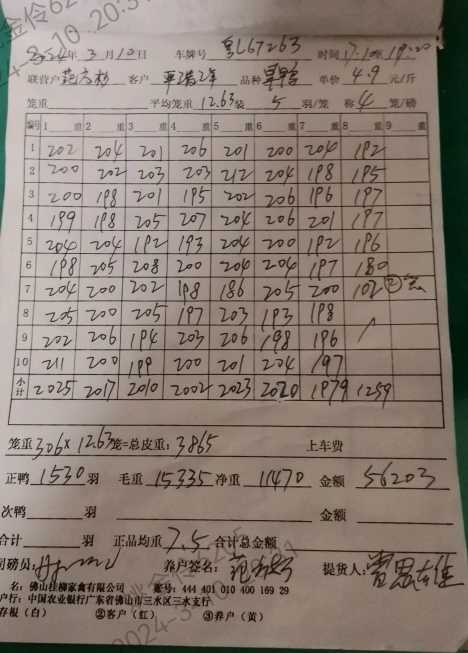 2024年3月10日 车牌号 粤L67263 时间17.10至19:20
联营户 客户 品种 单价 4.9 元/斤
笼重 平均笼重 12.63 装 5 羽/笼 称 4 笼/磅
编号 1 重 2 重 3 重 4 重 5 重 6 重 7 重 8 重 9 重
1 202 204 201 206 201 200 204 192
2 200 202 203 203 212 204 198 195
3 200 198 201 195 202 206 196 197
4 199 198 205 207 204 206 201 197
5 204 204 192 193 204 200 192 196
6 198 205 208 200 204 204 197 180
7 204 200 202 198 186 205 200 102 ②笼
8 205 200 205 197 203 193 198
9 202 206 194 203 206 198 196
10 211 200 199 200 201 204 197
小计 2025 2017 2010 2002 2023 2020 1979 1259
笼重 306 × 12.63 笼=总皮重: 3865 上车费
正鸭 1530 羽 毛重 15335 净重 11470 金额 56203
次鸭 羽 金额
合计 羽 正品均重 7.5 合计总金额
司磅员: 养户签名: 提货人:
名: 佛山桂柳家禽有限公司 账号: 444 401 010 400 169 29
户行: 中国农业银行广东省佛山市三水区三水支行
存根(白) ②客户(红) ③养户(黄)